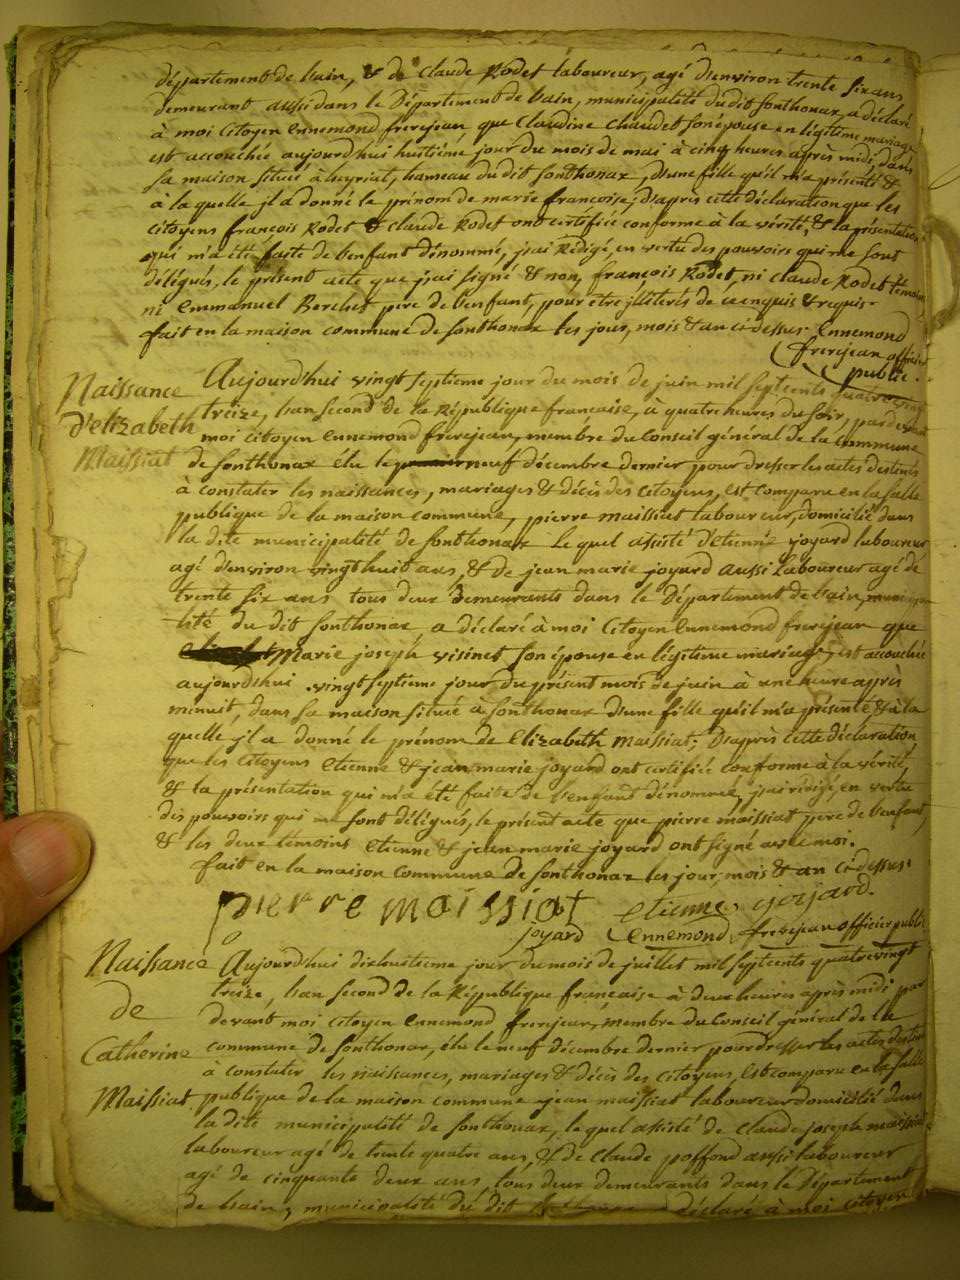 département de l'ain, & de Claude Rodet laboureur, agé d'environ trente six ans
demeurant aussi dans le Département de l'ain, municipalité du dit sonthonax, a déclaré
à moi Citoyen Ennemond frerejean que Claudine Chaudet son épouse en légitime mariage
est accouchée aujourd'hui huitième jour du mois de mai à cinq heures après midi, dans
sa maison situé à hameau du dit sonthonax, d'une fille qu'il m'a présenté &
à la quelle jl a donné le prénom de marie françoise; d'après cette déclaration que les
citoyens françois Rodet & Claude Rodet ont certifiée conforme à la vérité, & la présentation
qui m'a été faite de l'enfant dénommé, j'ai Rédigé, en vertu des pouvoirs qui me sont
délégués, le présent acte que j'ai signé & non, françois Rodet, ni Claude Rodet témoins
ni Emmanuel Berchet pere de l'enfant, pour etre jlliterés de ce enquis & requis.
fait en la maison commune de sonthonax les jour, mois & an ci-dessus. Ennemond
frerejean officier
public.
Naissance
d'elizabeth
Maissiat
Aujourd'hui vingt septieme jour du mois de juin mil septcents quatre vingt
treize, l'an second de la République francaise, à quatre heures du soir, pardevant
moi citoyen Ennemond frerejean, membre du Conseil général de la Commune
de sonthonax élu le neuf décembre dernier pour dresser les actes destinés
à constater les naissances, mariages & décès des Citoyens, est comparu en la salle
publique de la maison commune, pierre Maissiat laboureur, domicilié dans
la dite municipalité de sonthonax le quel assisté d'Etienne joyard laboureur
agé d'environ vingt huit ans, & de jean marie joyard aussi Laboureur agé de
trente six ans tous deux Demeurants dans le Département de l'ain, municipa
lité du dit sonthonax, a déclaré à moi Citoyen Ennemond frerejean que
Marie joseph visinet son épouse en légitime mariage, est accouchée
aujourd'hui vingt septieme jour du présent mois de juin à une heure après
minuit, dans sa maison situé à sonthonax d'une fille qu'il m'a présenté & à la
quelle jl a donné le prénom de Elizabeth Maissiat; D'après cette déclaration
que les Citoyens Etienne & jean marie joyard ont certifiée conforme à la vérité,
& la présentation qui m'a été faite de l'enfant dénommé, j'ai rédigé, en vertu
des pouvoirs qui me sont délégués, le présent acte que pierre maissiat pere de l'enfant,
& les deux témoins Etienne & jean marie joyard ont signé avec moi.
fait en la maison Commune de sonthonax les jour, mois & an ci-dessus.
pierre maissiat etienne joijard.
joyard Ennemond frerejean officier public
Naissance
de
Catherine
Maissiat
Aujourd'hui dixhuitieme jour du mois de juillet mil septcents quatrevingt
treize, l'an second de la République française à deux heures après midi par
devant moi citoyen Ennemond frerejean, membre du Conseil général de la
commune de sonthonax, élu le neuf décembre dernier pour dresser les actes destinés
à constater les naissances, mariages & décès des citoyens, est comparu en la salle
publique de la maison commune jean maissiat laboureur domicilié dans
la dite municipalité de sonthonax, le quel assisté de Claude joseph maissiat
laboureur agé de trente quatre ans, & de Claude poffond aussi laboureur
agé de cinquante deux ans, tous deux demeurants dans le Département
de l'ain, municipalité du dit déclaré à moi citoyen